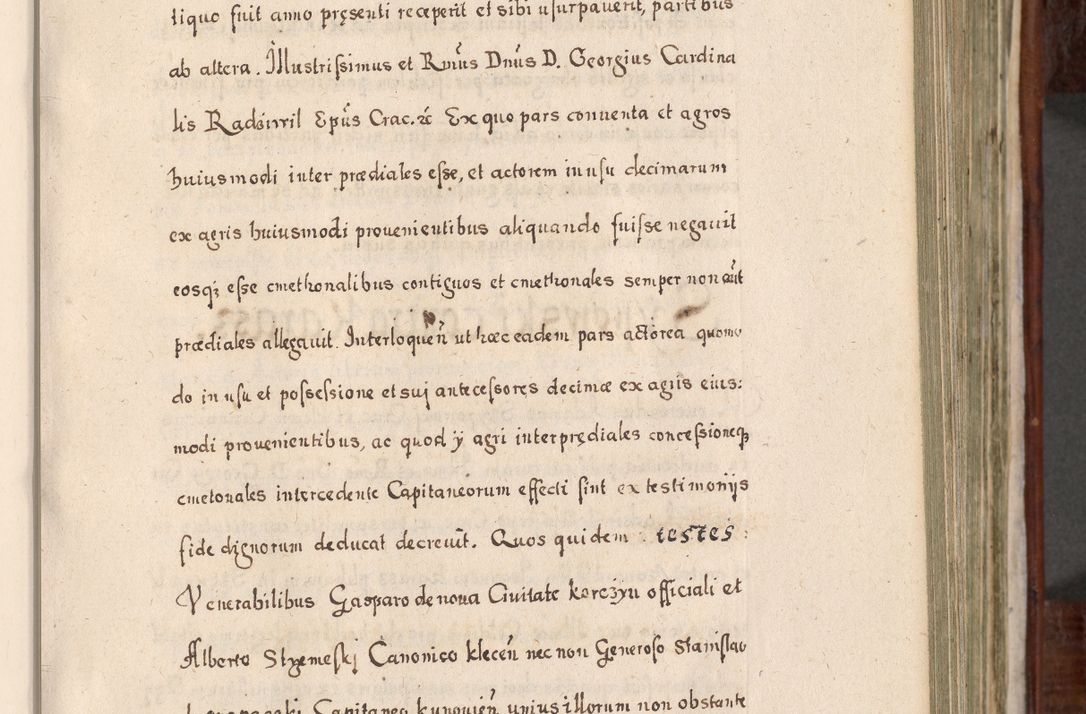 tiquo fuit anno pręsenti receperit et sibi usurpaverit, partibus
ab altera. Illustrissimus et Rmûs Dnûs D. Georgius Cardina
lis Radziwil Epûs Crac. etc Ex quo pars conventa et agros
huiusmodi inter prædiales esse, et actorem in usu decimarum
ex agris huiusmodi provenientibus aliquando fuisse negavit
eosq; esse cmethonalibus contiguos et cmethonales semper non aût
prædiales allegavit. Interloqueñ ut hæc eadem pars actorea quomo
do in usu et possessione et sui antecessores decimæ ex agris eius:
modi provenientibus, ac quod ÿ agri inter prędiales concessioneq;
cmetonales intercedente Capitaneorum effecti sint ex testimonijs
fide dignorum deducat decrevit. Quos quidem testes
Venerabilibus Gasparo de nova Civitate korczyn officiali et
Alberto Strzemeskj Canonico kleceñ nec non Generoso Stanislao
Capitaneo kunovieñ unius illorum non obstante